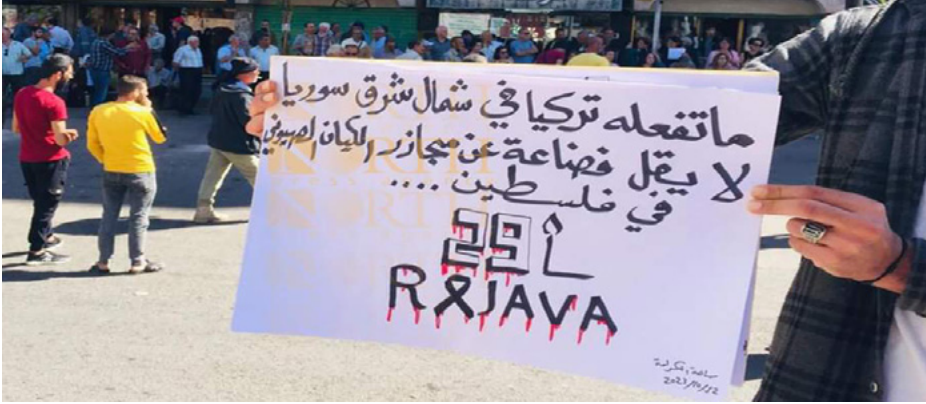 ما تفعله تركيا في شمال شرق سوريا
لا يقل فضاعة عن مجازر الكيان الصهيوني
في فلسطين ....
ROJAVA
ساحة الكرامة
2023/10/12
NORTH
NORTH